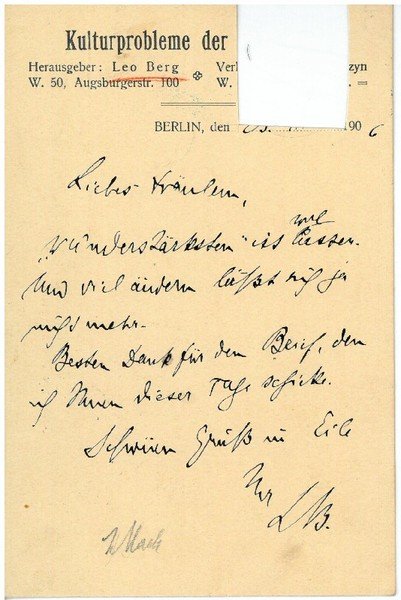 Kulturprobleme der
Herausgeber: Leo Berg Verl zyn
W. 50, Augsburgerstr. 100 W.
BERLIN, den 1906
Liebes Fräulein,
wol
„wunderstärksten" ist besser.
Und viel ändern läßt sich ja
nicht mehr.
Besten Dank für den Brief, den
ich Ihnen dieser Tage schicke.
Schönen Gruß in Eile
Ihr
LB.